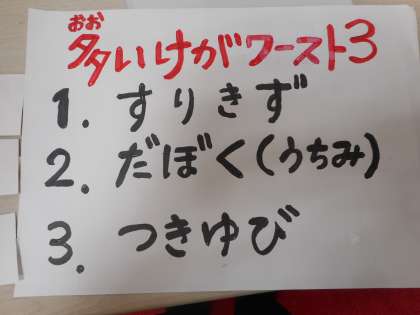 おお
多いけがワースト3
1. すりきず
2. だぼく(うちみ)
3. つきゆび